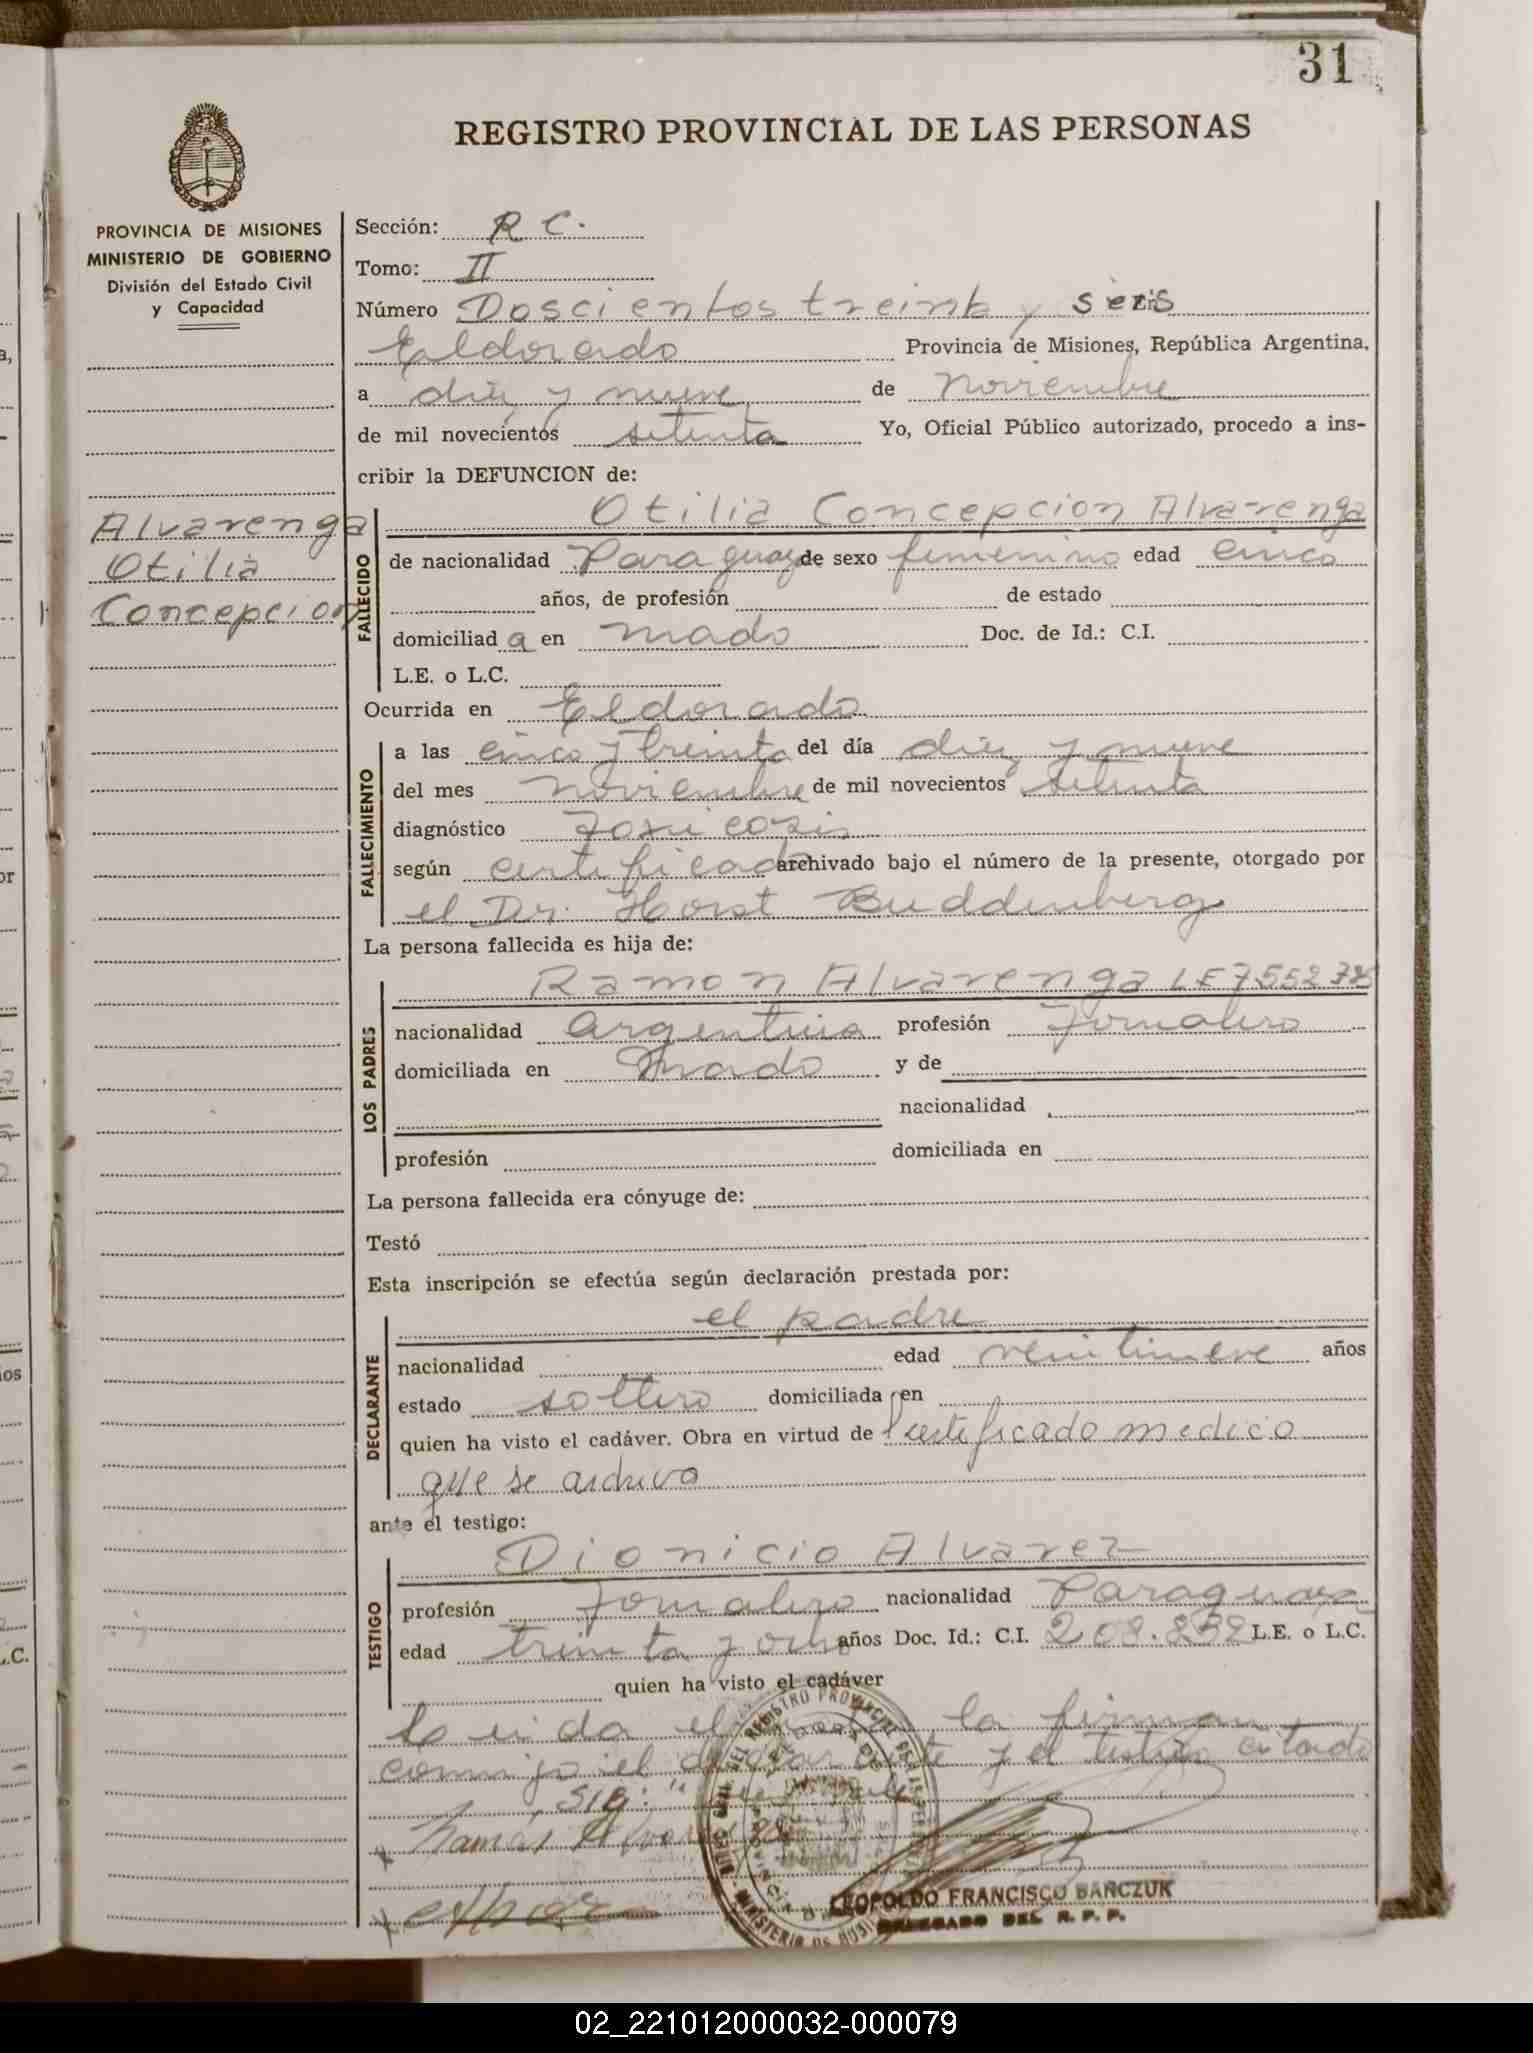 31
REGISTRO PROVINCIAL DE LAS PERSONAS
PROVINCIA DE MISIONES
MINISTERIO DE GOBIERNO
División del Estado Civil
y Capacidad
Alvarenga
Otilia
Concepcion
Sección: R C.
Tomo: II
Número Doscientos treinta y seis
Eldorado Provincia de Misiones, República Argentina,
a diez y nueve de noviembre
de mil novecientos setenta Yo, Oficial Público autorizado, procedo a ins-
cribir la DEFUNCION de:
FALLECIDO
Otilia Concepcion Alvarenga
de nacionalidad Paraguay de sexo femenino edad cinco
años, de profesión de estado
domiciliad a en Mado Doc. de Id.: C.I.
L.E. o L.C.
Ocurrida en Eldorado
FALLECIMIENTO
a las cinco y treinta del día diez y nueve
del mes noviembre de mil novecientos setenta
diagnóstico Toxicosis
según certificado archivado bajo el número de la presente, otorgado por
el Dr. Horst Buddenberg
La persona fallecida es hija de:
LOS PADRES
Ramon Alvarenga LE 7552
nacionalidad argentina profesión Jornalero
domiciliada en Mado y de
nacionalidad
profesión domiciliada en
La persona fallecida era cónyuge de:
Testó
Esta inscripción se efectúa según declaración prestada por:
DECLARANTE
el padre
nacionalidad edad veintinueve años
estado soltero domiciliada en
quien ha visto el cadáver. Obra en virtud de certificado medico
que se archiva
ante el testigo:
TESTIGO
Dionicio Alvarez
profesión Jornalero nacionalidad Paraguay
edad treinta y ocho años Doc. Id.: C.I. 208.852 L.E. o L.C.
quien ha visto el cadáver
Leida el la firman
conmigo el declarante y el testigo
LEOPOLDO FRANCISCO BANCZUK
DELEGADO DEL R. P. P.
02_221012000032-000079